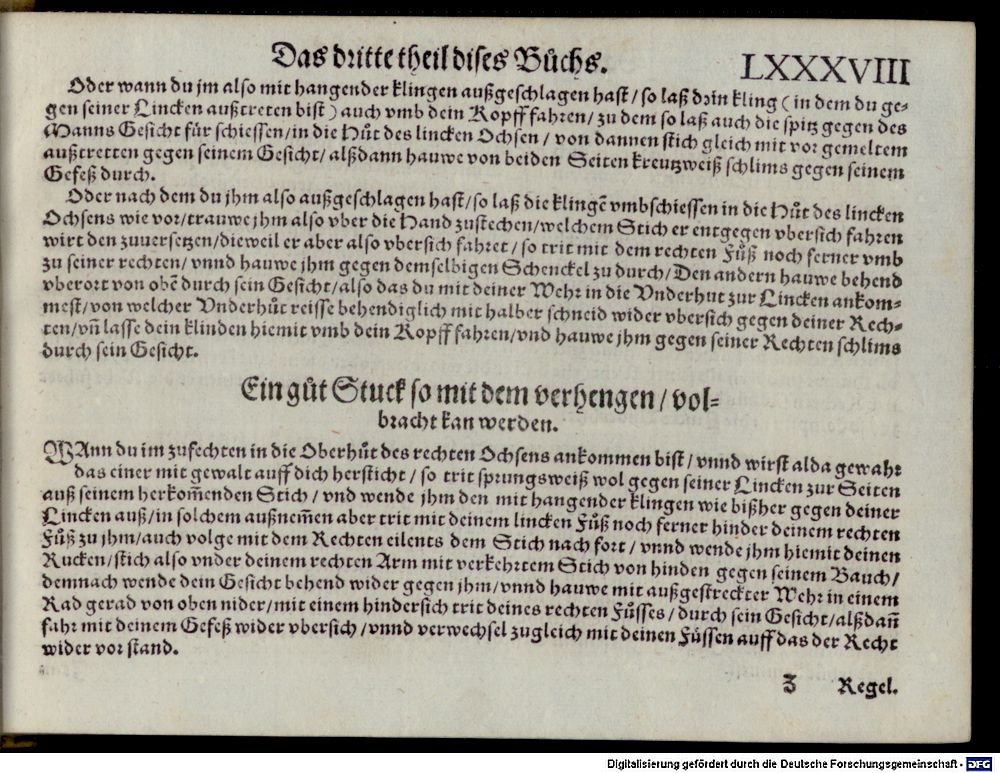 Das dritte theil dises Bůchs.
LXXXVIII
Oder wann du jm also mit hangender klingen außgeschlagen hast / so laß dein kling ( in dem du ge-
gen seiner Lincken außtreten bist ) auch vmb dein Kopff fahren / zu dem so laß auch die spitz gegen des
Manns Gesicht für schiessen / in die Hůt des lincken Ochsen / von dannen stich gleich mit vor gemeltem
außtretten gegen seinem Gesicht / alßdann hauwe von beiden Seiten kreutzweiß schlims gegen seinem
Gefeß durch.
Oder nach dem du jhm also außgeschlagen hast / so laß die klingẽ vmbschiessen in die Hůt des lincken
Ochsens wie vor / trauwe jhm also vber die Hand zustechen / welchem Stich er entgegen vbersich fahren
wirt den zuuersetzen / dieweil er aber also vbersich fahret / so trit mit dem rechten Fůß noch ferner vmb
zu seiner rechten / vnnd hauwe jhm gegen demselbigen Schenckel zu durch / Den andern hauwe behend
vberort von obẽ durch sein Gesicht / also das du mit deiner Wehr in die Vnderhut zur Lincken ankom-
mest / von welcher Vnderhůt reisse behendiglich mit halber schneid wider vbersich gegen deiner Rech-
ten / vñ lasse dein klinden hiemit vmb dein Kopff fahren / vnd hauwe jhm gegen seiner Rechten schlims
durch sein Gesicht.
Ein gůt Stuck so mit dem verhengen / vol-
bracht kan werden.
WAnn du im zufechten in die Oberhůt des rechten Ochsens ankommen bist / vnnd wirst alda gewahr
das einer mit gewalt auff dich hersticht / so trit sprungsweiß wol gegen seiner Lincken zur Seiten
auß seinem herkom̃enden Stich / vnd wende jhm den mit hangender klingen wie bißher gegen deiner
Lincken auß / in solchem außnem̃en aber trit mit deinem lincken Fůß noch ferner hinder deinem rechten
Fůß zu jhm / auch volge mit dem Rechten eilents dem Stich nach fort / vnnd wende jhm hiemit deinen
Rucken / stich also vnder deinem rechten Arm mit verkehrtem Stich von hinden gegen seinem Bauch /
demnach wende dein Gesicht behend wider gegen jhm / vnnd hauwe mit außgestreckter Wehr in einem
Rad gerad von oben nider / mit einem hindersich trit deines rechten Fůsses / durch sein Gesicht / alßdañ
fahr mit deinem Gefeß wider vbersich / vnnd verwechsel zugleich mit deinen Füssen auff das der Recht
wider vor stand.
Z Regel.
Digitalisierung gefördert durch die Deutsche Forschungsgemeinschaft - DFG